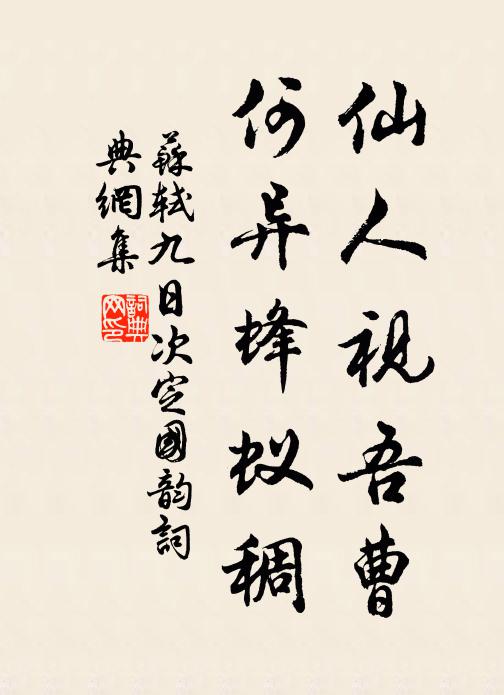 仙人視吾曹
何异蜂蚁稠
蘇軾九日次定國韵詞
典網集
詞典网印